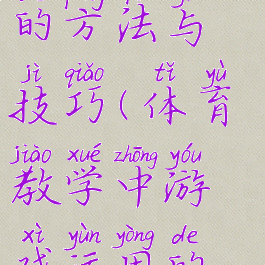 的方法与
jì qiǎo tǐ yù
技巧(体育
jiào xué zhōng yóu
教学中游
xì yùn yòng de
戏运用的